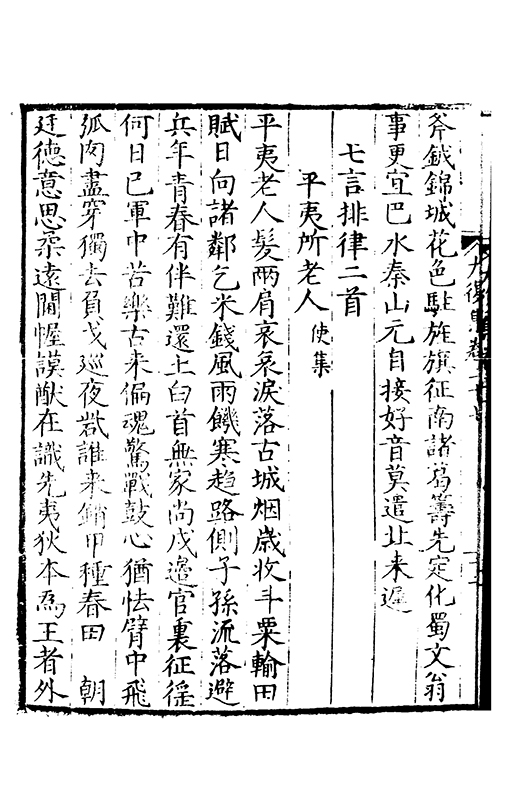 斧鉞錦城花色駐旌旗征南諸葛籌先定化蜀文翁
事更宜巴水秦山元自接好音莫遣北来遲
七言排律二首
平夷所老人 使集
平夷老人髮兩肩哀哀淚落古城烟歲收斗粟輸田
賦日向諸鄰乞米錢風雨饑寒趋路側子孫流落避
兵年青春有伴難還上白首無家尚戍邉官裏征徭
何日已軍中苦樂古来偏魂驚戰鼓心猶怯臂中飛
弧肉盡穿獨去負戈廵夜柝誰来銷甲種春田 朝
廷德意思柔遠閫幄謨猷在識先夷狄本爲王者外